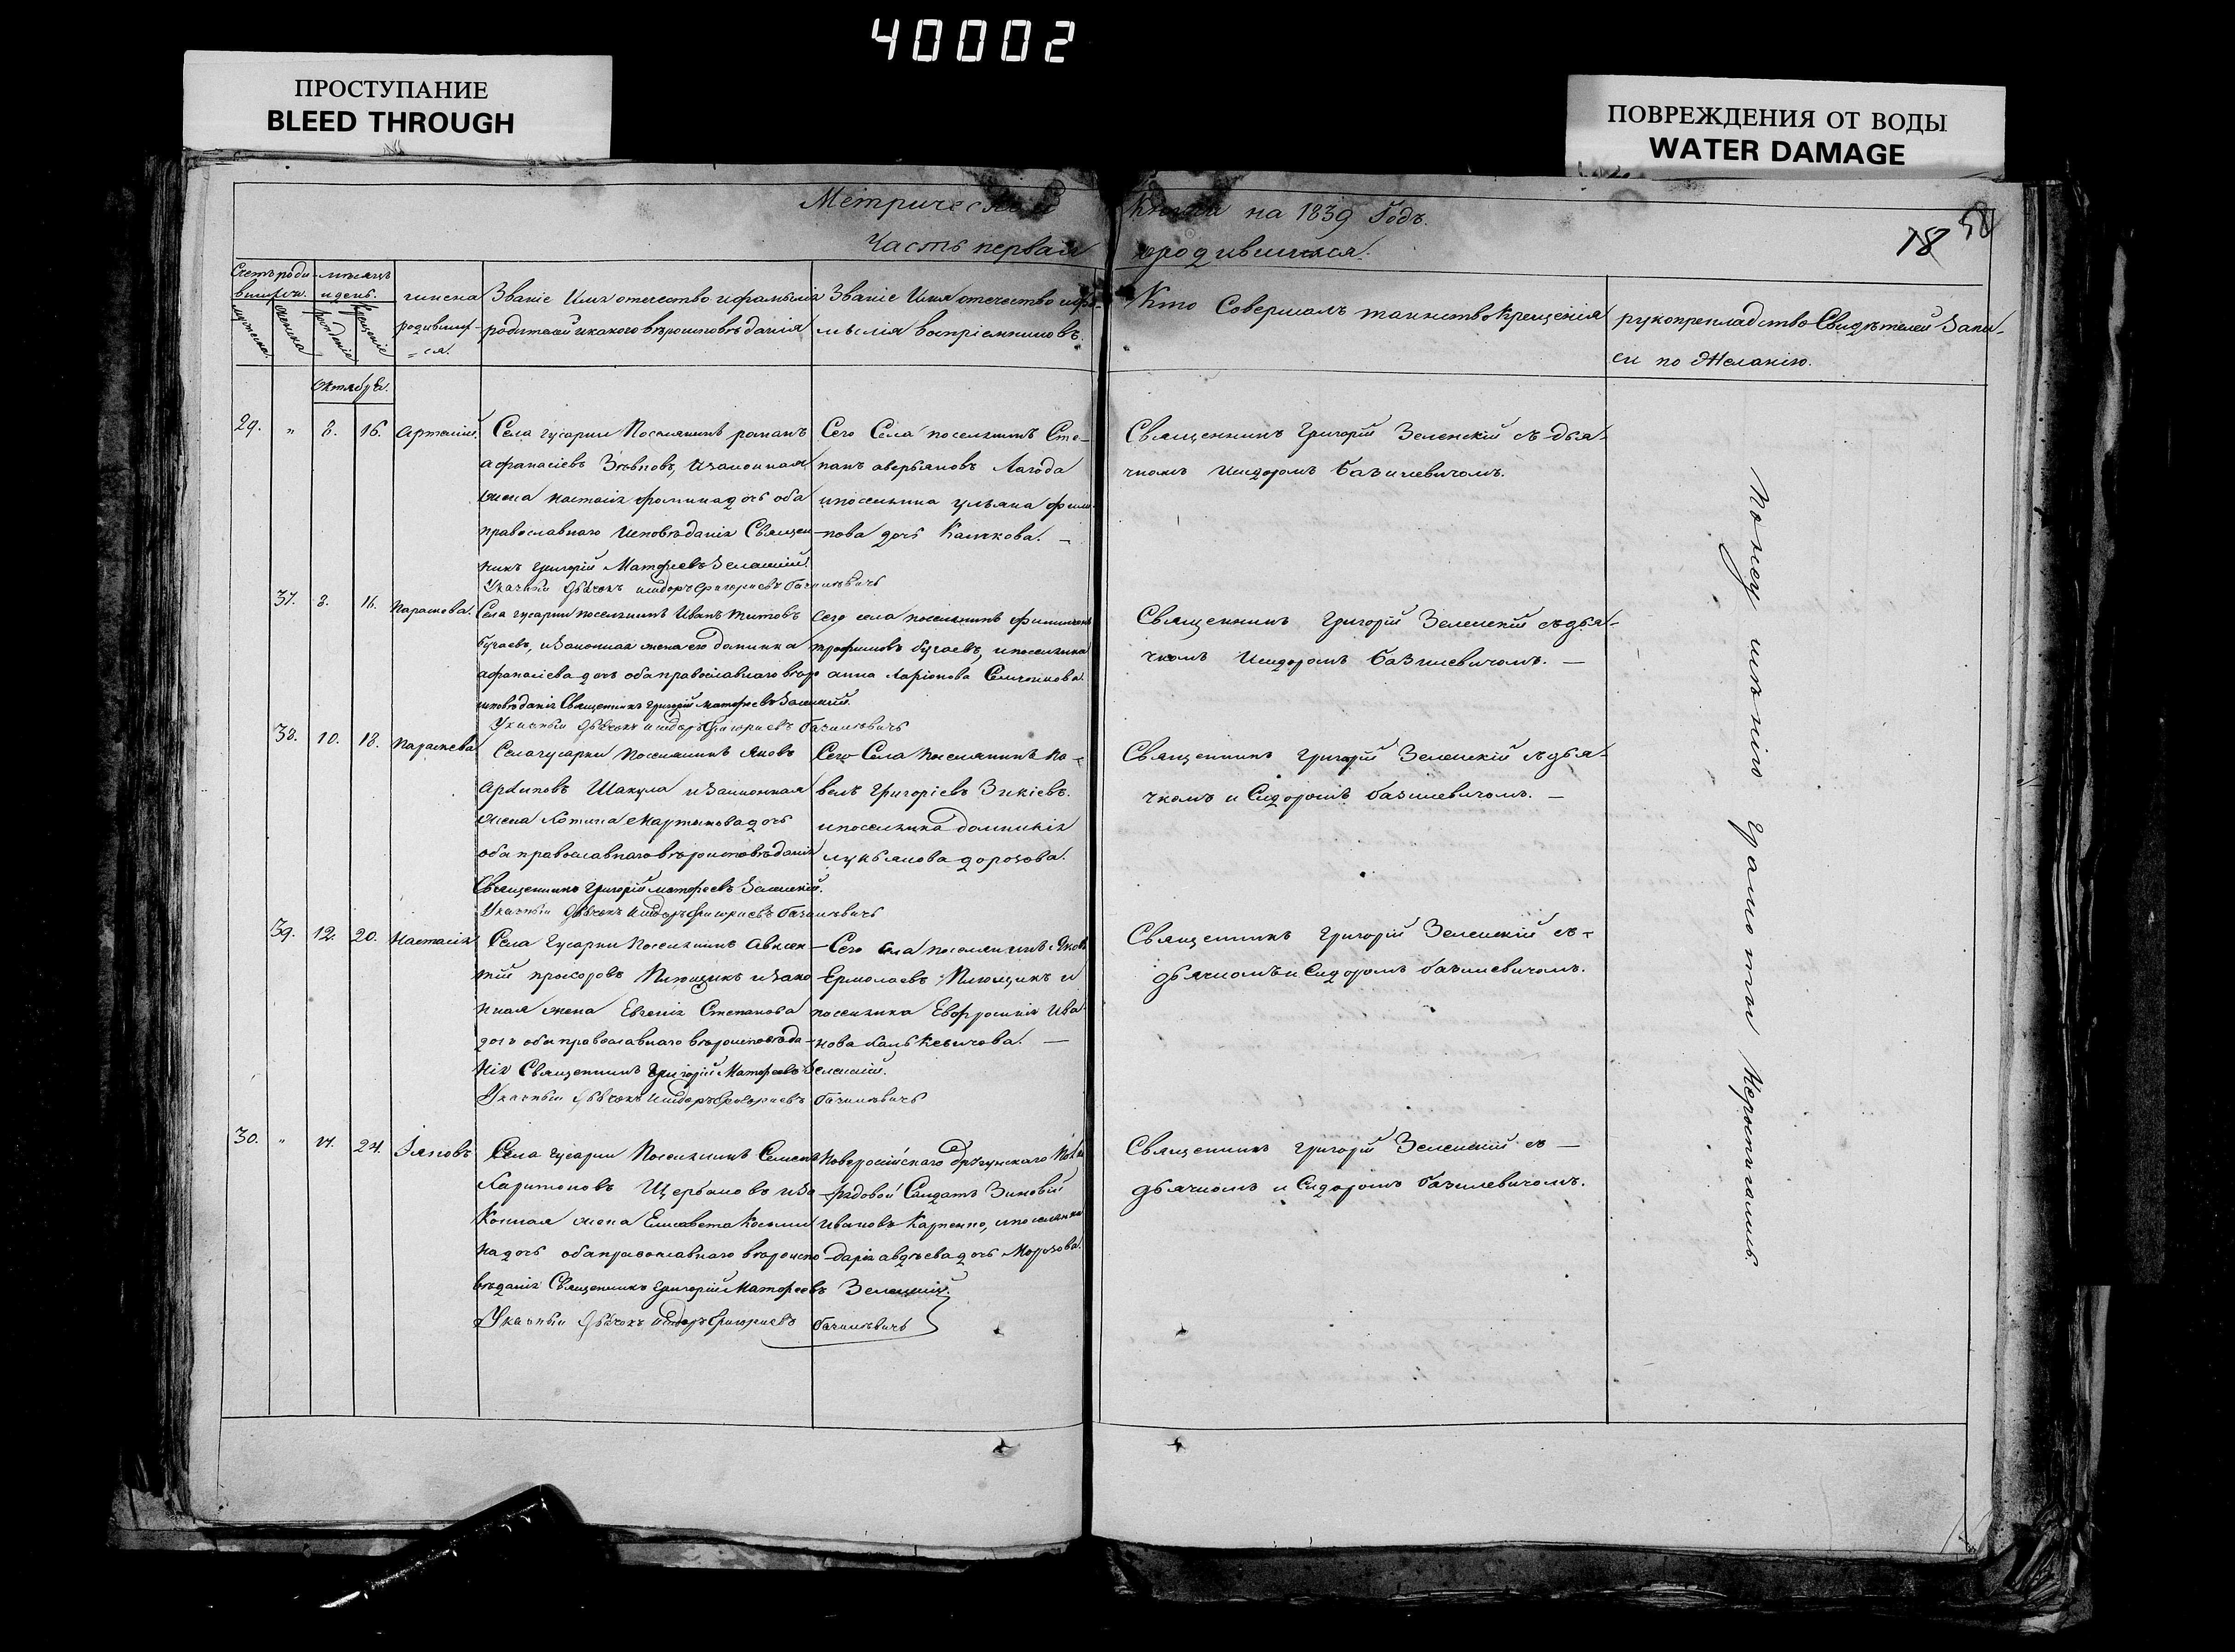 40002
ПРОСТУПАНИЕ
BLEED THROUGH
ПОВРЕЖДЕНИЯ ОТ ВОДЫ
WATER DAMAGE
Метрической книги на 1839 Годъ.
Часть первая о родившихся.
18 58
Счетъ роди-
вшихся.
мужеска.
женска
мѣсяцъ
и день.
рожденіе
крещеніе
имена
родивших-
=ся.
Званіе Имя отечество и фамилія
родителей и какого вѣроисповѣданія
Званіе Имя отечество и фа-
милія воспріемниковъ.
Кто Совершалъ таинство Крещенія
рукоприкладство Свидѣтелей Запи-
си по Желанію.
октября.
29. " 8. 16. Артемій.
Села гусарки Поселянинъ романъ
афанасіевъ и законная
жена настасія фомина дочь оба
православнаго исповѣданія Священ-
никъ григорій Матфеевъ Зеленскій
Указный Дьячокъ исидоръ григориевъ базилевичь
Сего Села поселянинъ Сте-
панъ аверьяновъ Лагода
и поселянка ульяна фили-
пова дочь
Священникъ Григорій Зеленскій съ дья-
чкомъ Исидоромъ базилевичомъ.
37. 8. 16. Параскева.
Села гусарки поселянинъ Иванъ титовъ
бугаевъ, и законная жена его
афанасіева дочь оба православнаго вѣро
исповѣданія Священникъ григорій матфеевъ Зеленскій.
Указный Дьячокъ исидоръ григориевъ базилевичь
Сего села поселянинъ
трофимовъ бугаевъ, и поселянка
анна Ларіонова
Священникъ Григорій Зеленскій съ дья-
чкомъ Исидоромъ базилевичомъ. —
38. 10. 18. Параскева
Села гусарки Поселянинъ Яковъ
Шакула и законная
жена Мартинова дочь
оба православнаго вѣроисповѣданія
Священникъ григорій матфеевъ Зеленскій.
Указный Дьячокъ исидоръ григориевъ базилевичь
Сего Села Поселянинъ па-
велъ григоріевъ Зикіевъ.
и поселянка домникія
лукьянова дорохова.
Священникъ григорій Зеленскій съ дья-
чкомъ и Сидоромъ базилевичомъ. —
39. 12. 20. Настасія
Села Гусарки Поселянинъ Авксен-
тій прохоровъ Плющикъ и зако-
нная жена Евгенія Степанова
дочь оба православнаго вѣроисповѣда-
нія Священникъ Григорій Матфеевъ Зеленскій.
Указный Дьячокъ исидоръ григориевъ базилевичь
Сего села поселянинъ Яковъ
Ермолаевъ Плющикъ и
поселянка Евфросинія Ива-
нова
Священникъ Григорій Зеленскій съ-
дьячкомъ и Сидоромъ базилевичомъ.
30. " 24. Іяковъ
Села гусарки Поселянинъ Семенъ
Харитоновъ Щербаковъ и за-
конная жена Елисавета Косми-
на дочь оба православнаго вѣроиспо-
вѣданія Священникъ Григорій Матфеевъ Зеленскій.
Указный Дьячокъ исидоръ григориевъ базилевичь
Новоросійскаго драгунскаго Пол.
рядовой Салдатъ Зиновій
Ивановъ Карпенко, и поселянка
дарія авдѣева дочь Морозова.
Священникъ григорій Зеленскій съ —
дьячкомъ и Сидоромъ базилевичомъ.
По не имѣнію грамоты не